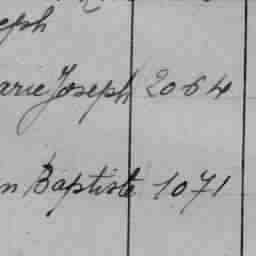 eph
arie Joseph 2064
n Baptiste 1071